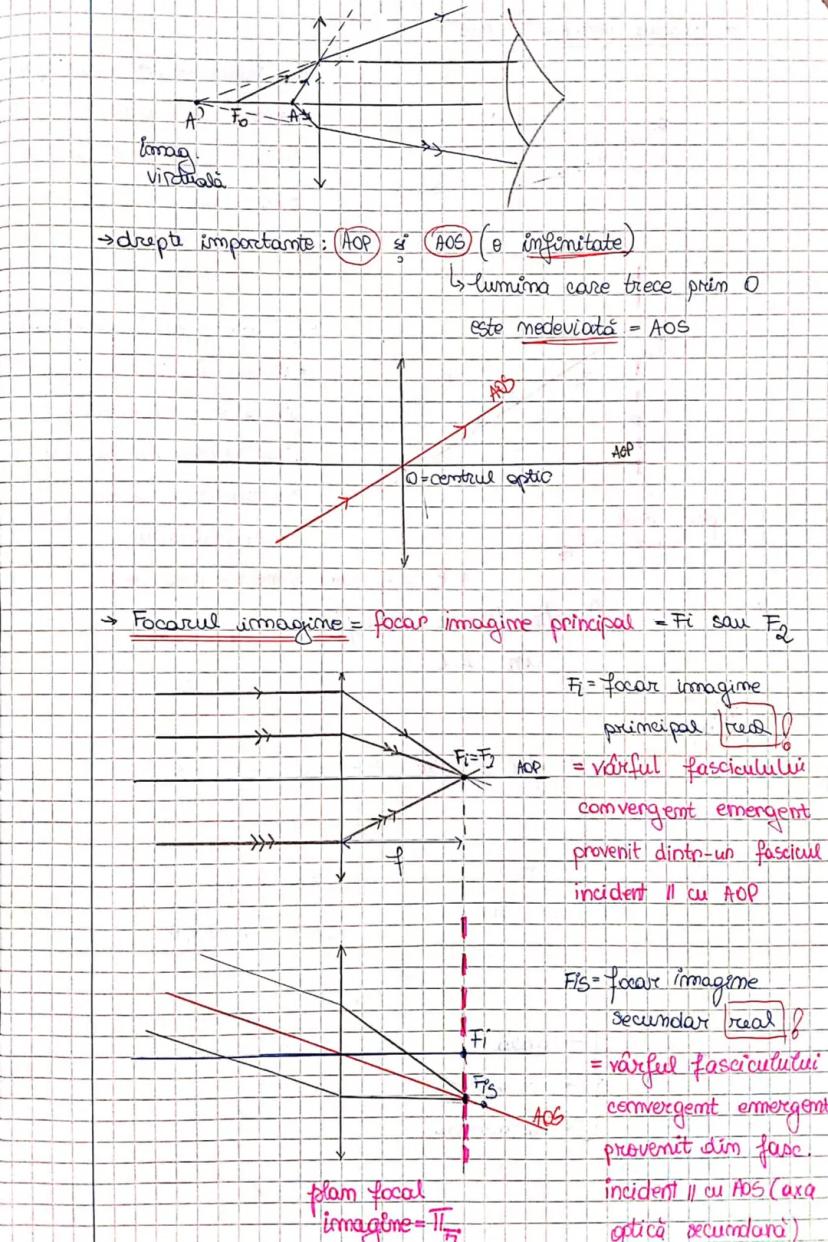 A' F₀ A
imag.
virtuală
→ drepte importante: AOP și AOS (o infinitate)
↳ lumina care trece prin O
este nedeviată = AOS
AOS
AOP
O = centrul optic
→ Focarul imagine = focar imagine principal = Fi sau F₂
Fi = focar imagine
principal real!
Fi = F₂ AOP
= vârful fasciculului
convergent emergent
f
provenit dintr-un fascicul
incident || cu AOP
Fis = focar imagine
secundar real!
Fi
= vârful fasciculului
Fis
convergent emergent
AOS
provenit din fasc.
plan focal
incident || cu AOS (axa
imagine = π Fi
optică secundară)